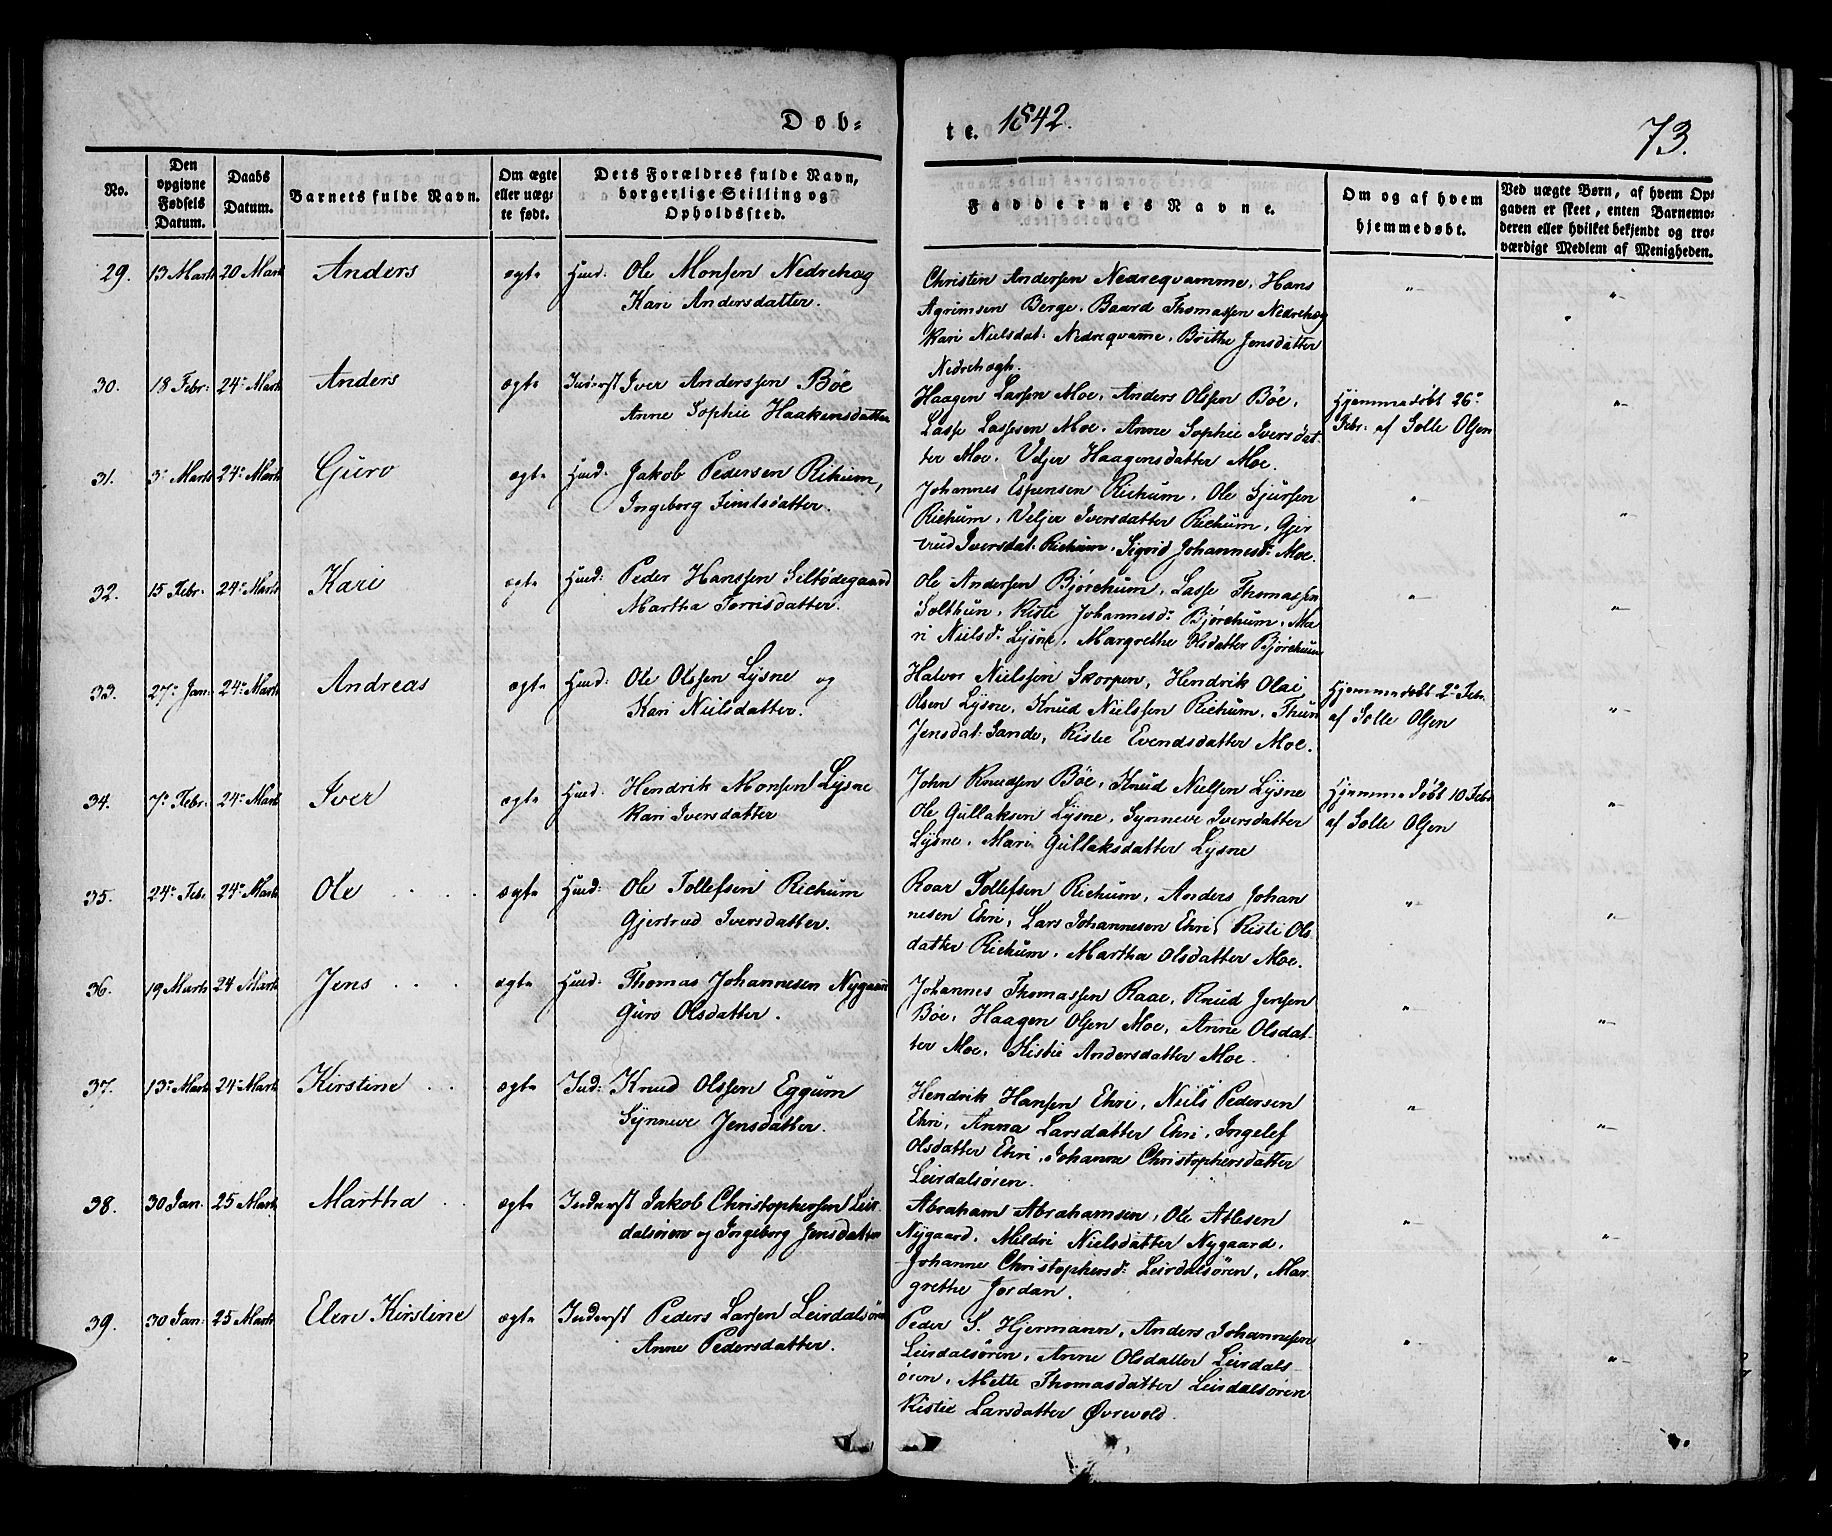 Døb=
te. 1842.
73.
No.
Den opgivne Fødsels Datum.
Daabs Datum.
Barnets fulde Navn.
Om ægte eller uægte født.
Dets Forældres fulde Navn, borgerlige Stilling og Opholdssted.
Faddernes Navne.
Om og af hvem hjemmedøbt.
Ved uægte Børn, af hvem Opgaven er skeet, enten Barnemoderen eller hvilket bekjendt og troværdigt Medlem af Menigheden.
29. 13 Marts 20 Mart Anders ægte Huusd: Ole Monsen Nedrehæg
Kari Andersdatter.
Christen Andersen Nedreqvamme, Hans
Agrimsen Berge. Baard Thomassen Nedrehæg
Kari Nielsdat. Nedreqvame. Brithe Jensdatter
Nedrehægh.
30. 18 Febr: 24de Mart Anders ægte Inderst Iver Anderssen Bøe
Anne Sophie Haakensdatter
Haagen Larsen Moe. Anders Olsen Bøe.
Lasse Lassesen Moe. Anne Sophie Iversdat-
ter Moe. Veljer Haagensdatter Moe.
Hjemmedøbt 26de
Febr: af Solle Olsen
31. 3de Marts 24de Mart Guro ægte Huusd: Jakob Pedersen Rikum,
Ingeborg Simlsdatter.
Johannes Espensen Richum. Ole Sjursen
Richum. Veljer Iversdatter Richum. Gjer
trud Iversdat. Richum. Sigrid Johannesd: Moe.
32. 15 Febr: 24de Marts Kari ægte Huusd: Peder Hanssen Seltødegaard
Martha Torrisdatter.
Ole Andersen Bjørchum, Lasse Thomassen
Solthun, Kiste Johannesd: Bjørchum. Ma
ri Nielsd: Lysne, Margrethe Olsdatter Bjørchum
33. 27de Jan: 24de Marts Andreas ægte Huusd: Ole Olssen Lysne og
Kari Nielsdatter.
Halvor Nielssen Skorpen, Hendrik Olai
Olsen Lysne. Knud Nielssen Richum. Thuri
Jensdat. Sande, Kistie Evendsdatter Moe.
Hjemmedøbt 2de Febr.
af Solle Olsen
34. 7de Febr: 24de Mart Iver ægte Huusd: Hendrik Monsen Lysne
Kari Iversdatter
John Knudsen Bøe. Knud Nielsen Lysne
Ole Gullaksen Lysne. Synneve Iversdatter
Lysne, Mari Gullaksdatter Lysne
Hjemmedøbt 10 Febr
af Solle Olsen
35. 24de Febr 24de Marts Ole ægte Huusd: Ole Tollefsen Richum
Gjertrud Iversdatter.
Roar Tollefsen Richum, Anders Johan
nesen Ehri, Lars Johannesen Ehri, Kisti Ols-
datter Richum. Martha Olsdatter Moe.
36. 19 Marts 24 Marts Jens ægte Huusd: Thomas Johannesen Nygaard
Guro Olsdatter.
Johannes Thomassen Raae, Knud Jensen
Bøe. Haagen Olsen Moe, Anne Olsdat-
ter Moe. Kistie Andersdatter Moe.
37. 13de Marts 24de Marts Kirstine ægte Ind: Knud Olssen Eggum
Synneve Jensdatter.
Hendrik Hansen Ehri, Niels Pedersen
Ehri, Anna Larsdatter Ehri, Ingelef
Olsdatter Ehri, Johanne Christophersdatter
Leirdalsøren.
38. 30 Jan. 25 Marts Martha ægte Inderst Jakob Christophersen Leir-
dalsøren og Ingeborg Jensdatter
Abraham Abrahamsen, Ole Atlesen
Nygaard, Mildri Nielsdatter Nygaard.
Johanne Christophersd: Leirdalsøren, Mar-
grethe Jordan.
39. 30 Jan: 25 Marts Elen Kirstine ægte Inderst Peders Larsen Leirdalsøren
Anne Pedersdatter.
Peder S. Hjermann, Anders Johannesen
Leirdalsøren, Anne Olsdatter Leirdals-
øren, Mette Thomasdatter Leirdalsøren
Kistie Larsdatter Øvrevold.